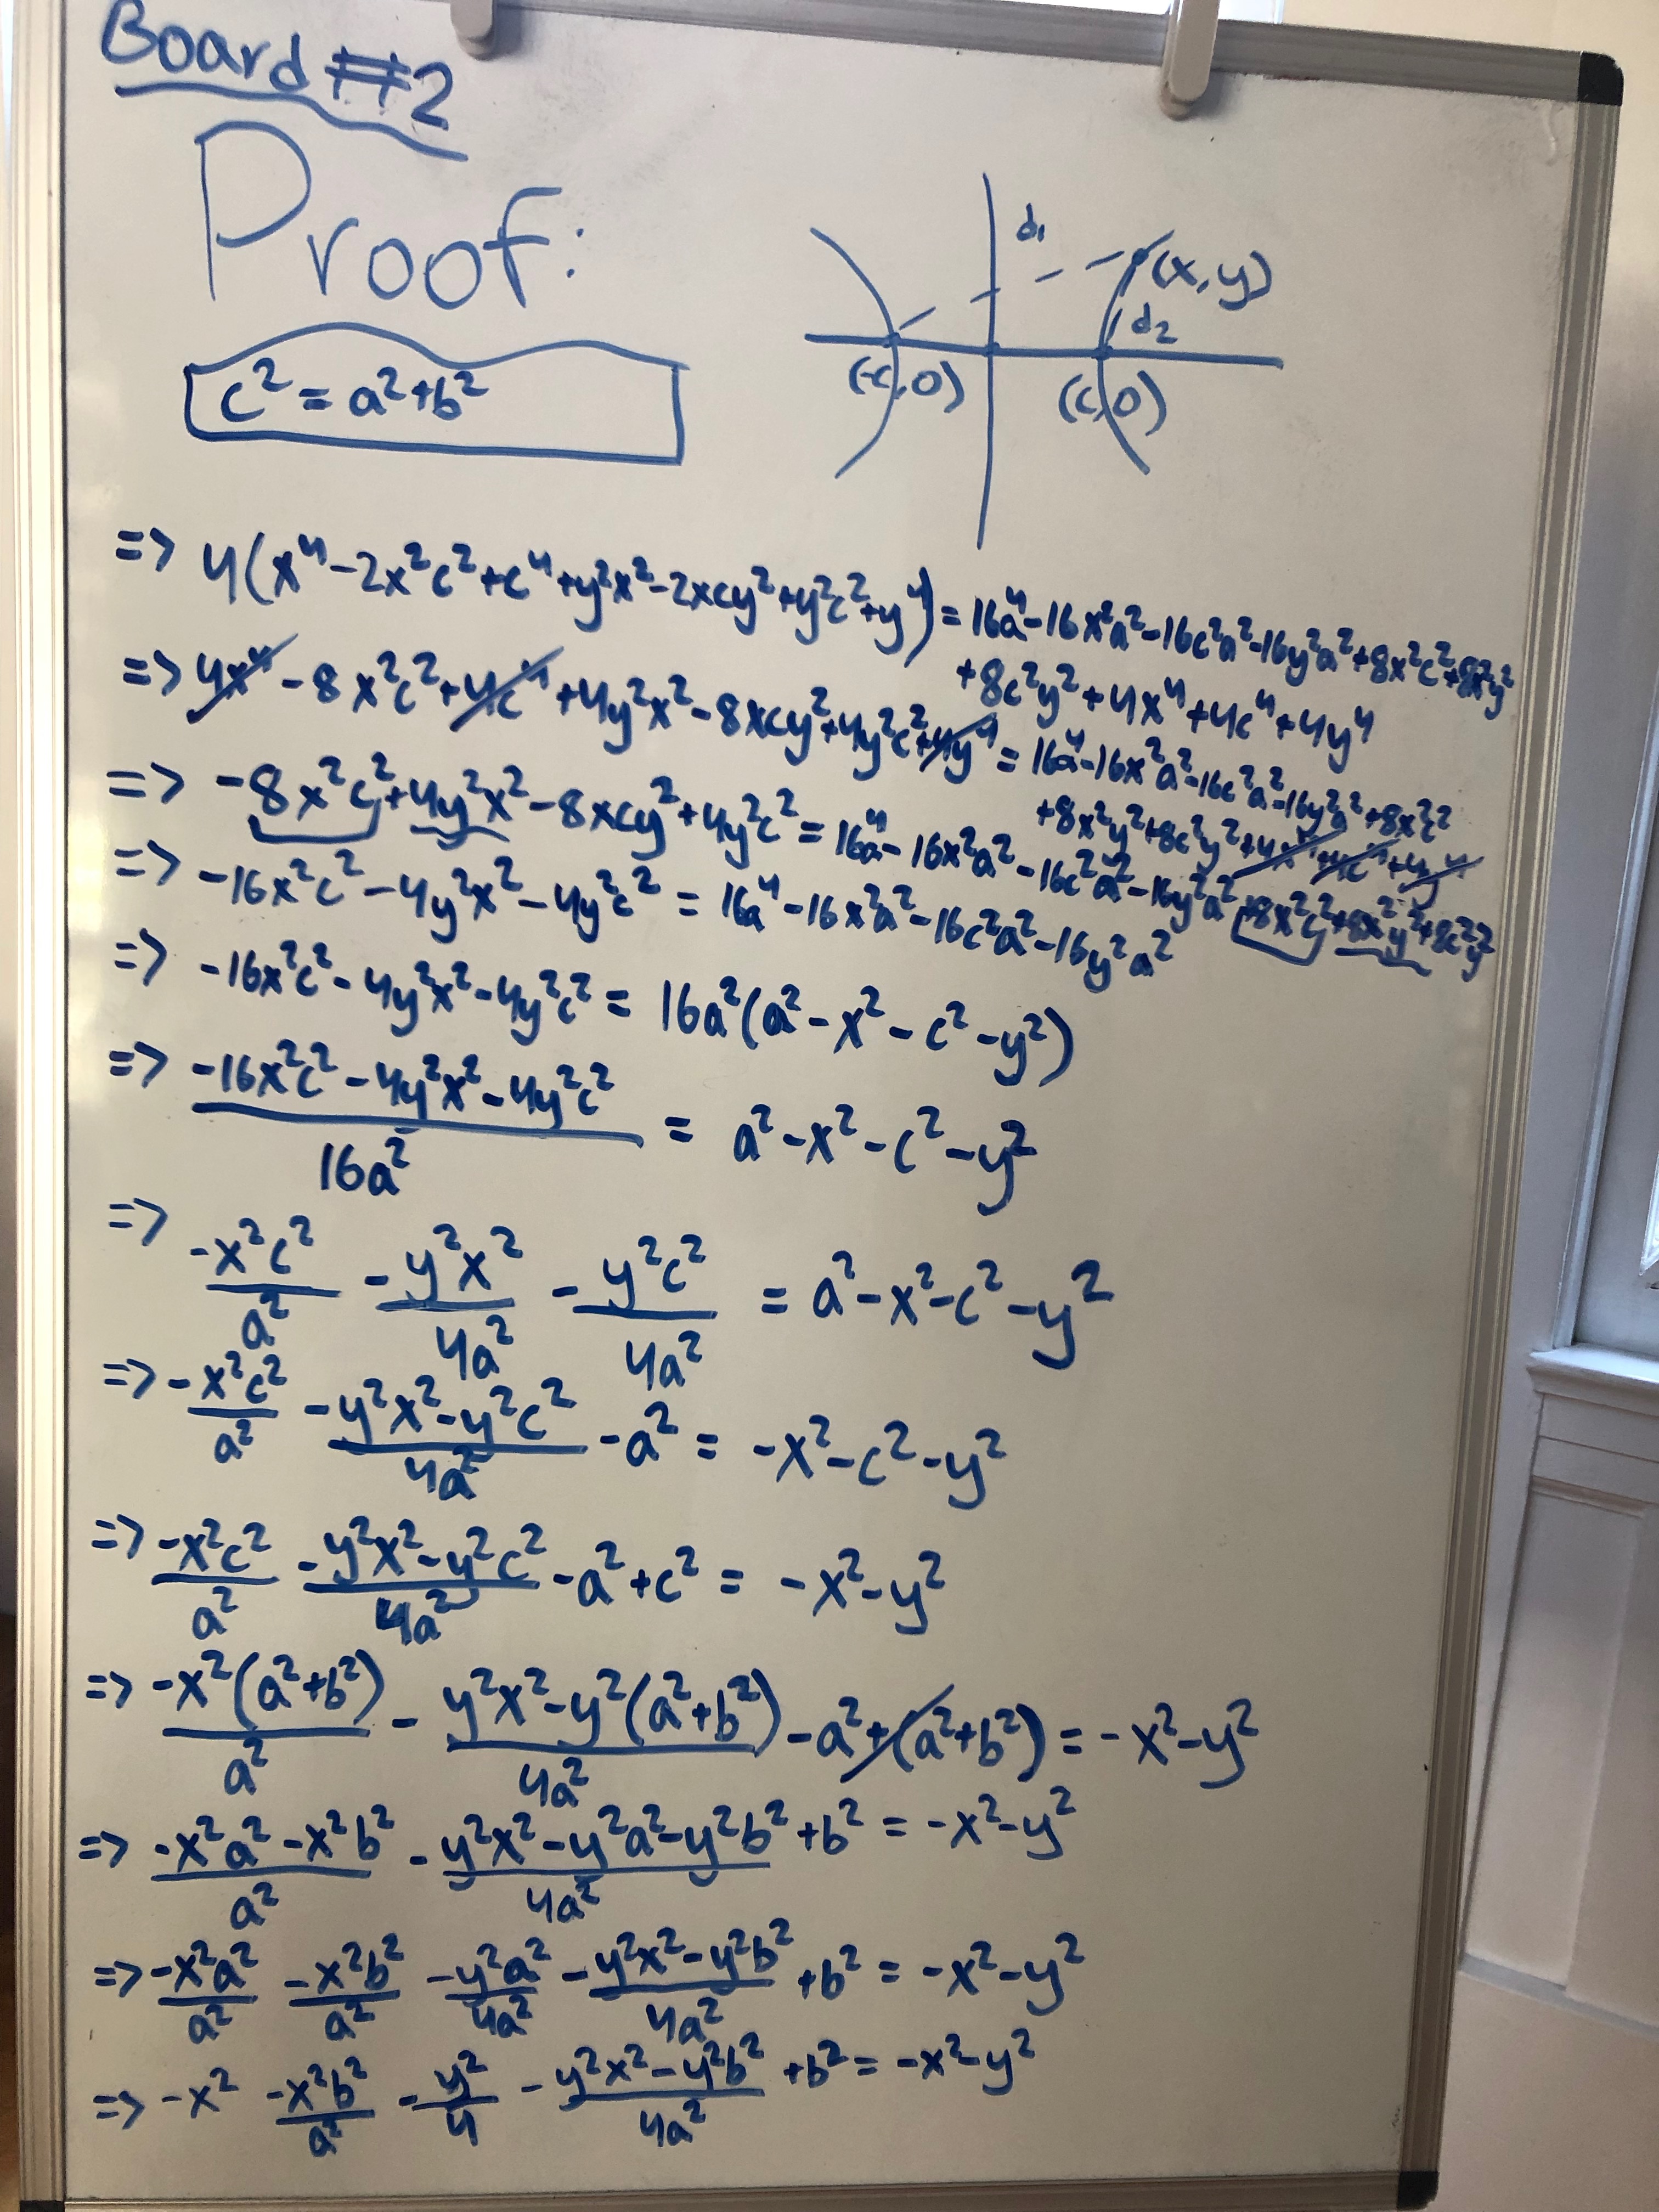 Board #2
Proof:
c² = a²+b²
d₁
(x,y)
d₂
(-c,0)
(c,0)
=> 4(x⁴-2x²c²+c⁴+y²x²-2xcy²+y²c²+y⁴) = 16a⁴-16x²a²-16c²a²-16y²a²+8x²c²+8x²y²
+8c²y²+4x⁴+4c⁴+4y⁴
=> 4x⁴-8x²c²+4c⁴+4y²x²-8xcy²+4y²c²+4y⁴ = 16a⁴-16x²a²-16c²a²-16y²a²+8x²c²
+8x²y²+8c²y²+4x⁴+4c⁴+4y⁴
=> -8x²c²+4y²x²-8xcy²+4y²c² = 16a⁴-16x²a²-16c²a²-16y²a²+8x²c²+8x²y²+8c²y²
=> -16x²c²-4y²x²-4y²c² = 16a⁴-16x²a²-16c²a²-16y²a²
=> -16x²c²-4y²x²-4y²c² = 16a²(a²-x²-c²-y²)
=> (-16x²c²-4y²x²-4y²c²)/16a² = a²-x²-c²-y²
=> -x²c²/a² - y²x²/4a² - y²c²/4a² = a²-x²-c²-y²
=> -x²c²/a² - (y²x²-y²c²)/4a² - a² = -x²-c²-y²
=> -x²c²/a² - (y²x²-y²c²)/4a² - a²+c² = -x²-y²
=> -x²(a²+b²)/a² - (y²x²-y²(a²+b²))/4a² - a²+(a²+b²) = -x²-y²
=> (-x²a²-x²b²)/a² - (y²x²-y²a²-y²b²)/4a² + b² = -x²-y²
=> -x²a²/a² - x²b²/a² - y²a²/4a² - (y²x²-y²b²)/4a² + b² = -x²-y²
=> -x² - x²b²/a² - y²/4 - (y²x²-y²b²)/4a² + b² = -x²-y²